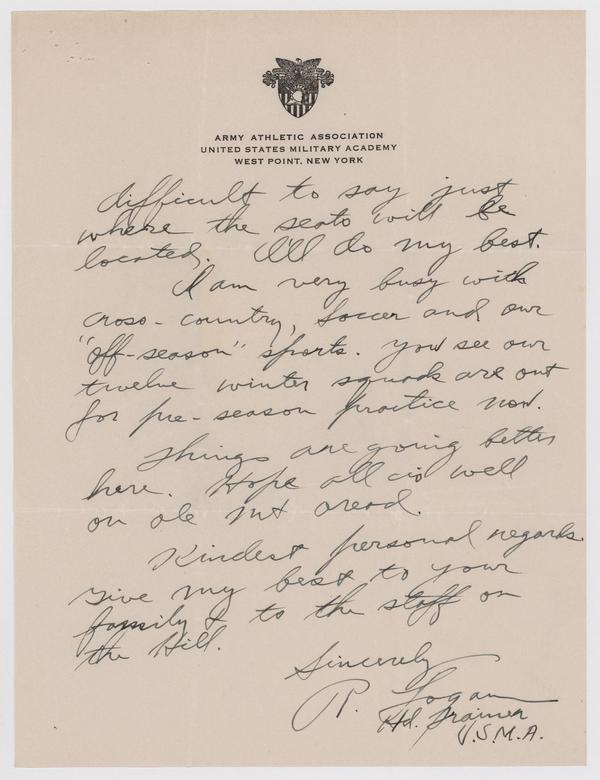 ARMY ATHLETIC ASSOCIATION
UNITED STATES MILITARY ACADEMY
WEST POINT, NEW YORK
difficult to say just
where the seats will be
located. I'll do my best.
I am very busy with
cross-country, soccer and our
"off-season" sports. You see our
twelve winter squads are out
for pre-season practice now.
Things are going better
here. Hope all is well
on ole Mt Oread.
Kindest personal regards.
Give my best to your
family & to the staff on
the Hill.
Sincerely
R. Logan
Hd. Trainer
U.S.M.A.